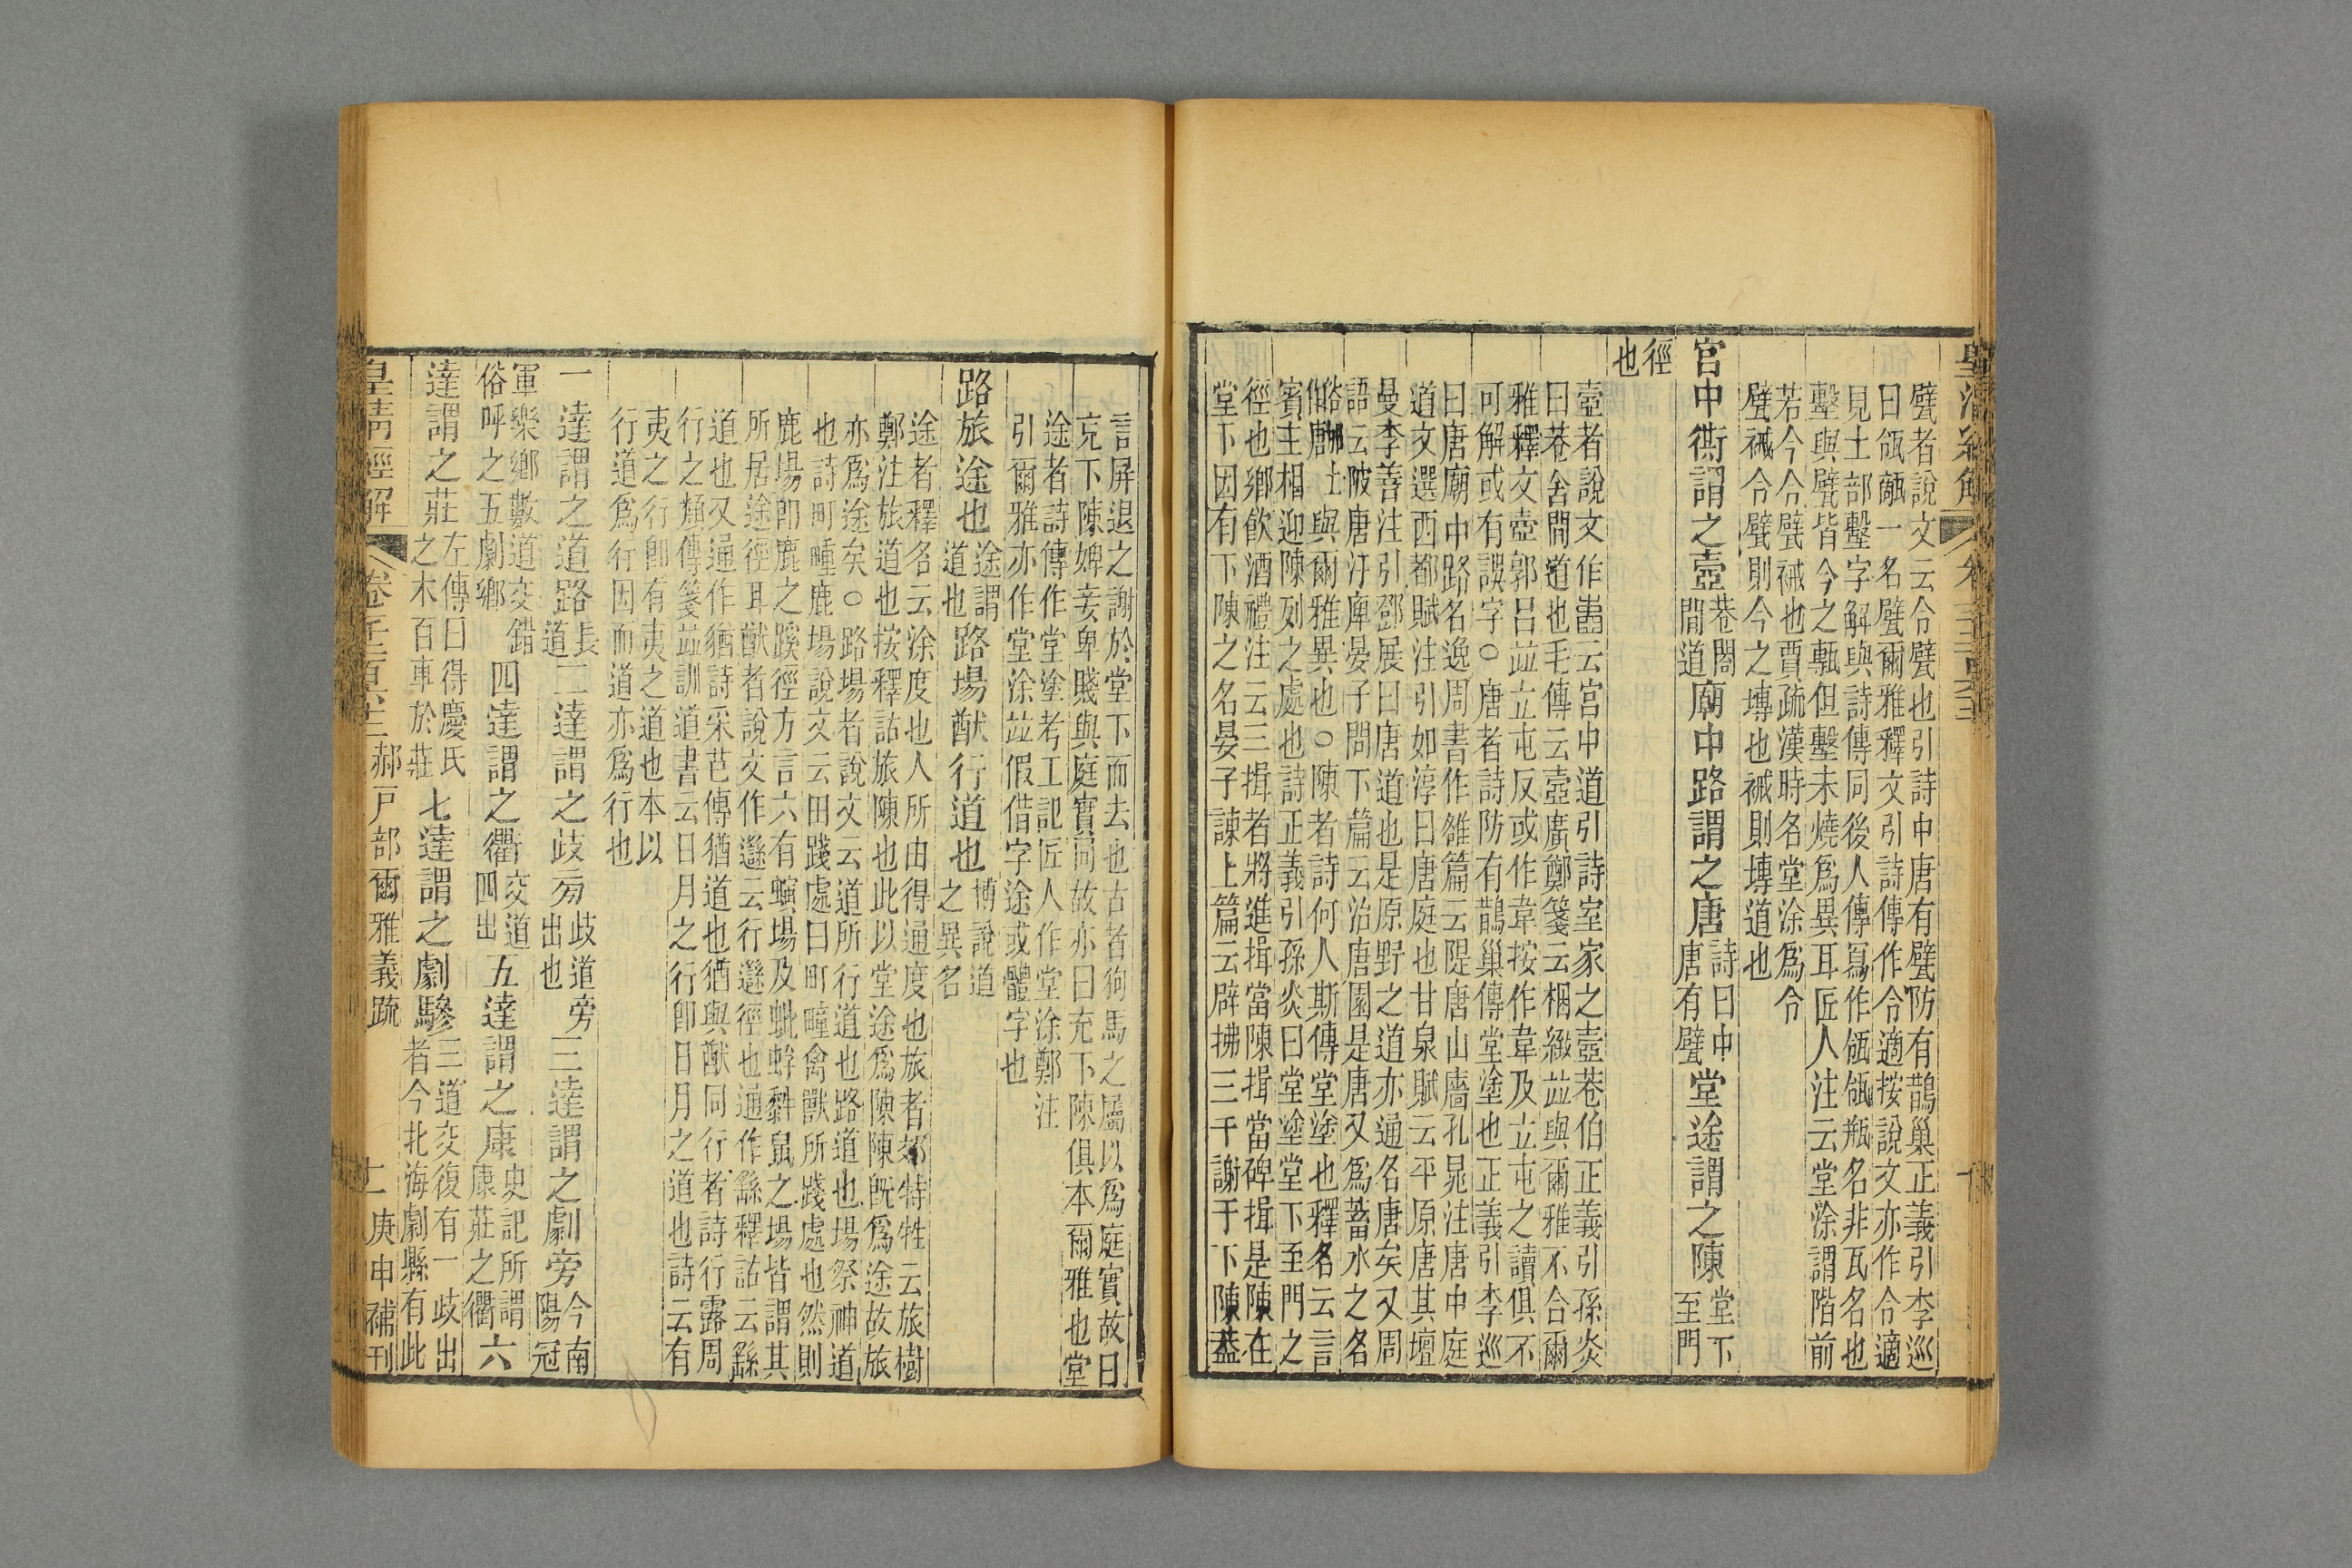 甓者說文云令甓也引詩中唐有甓防有鵲巢正義引李巡
曰瓴甋一名甓爾雅釋文引詩傳作令適按說文亦作令適
見土部墼字解與詩傳同後人傳寫作瓴瓴瓶名非瓦名也
墼與甓皆今之甎但墼未燒爲異耳匠人注云堂涂謂階前
若今令甓裓也賈疏漢時名堂涂爲令
甓裓令甓則今之塼也裓則塼道也
宮中衖謂之壼巷閤間道廟中路謂之唐詩曰中唐有甓堂途謂之陳堂下至門
徑也
壼者說文作𡇈云宮中道引詩室家之壼巷伯正義引孫炎
曰巷舍間道也毛傳云壼廣鄭箋云梱緻並與爾雅不合爾
雅釋文壼郭呂並立屯反或作韋按作韋及立屯之讀俱不
可解或有誤字○唐者詩防有鵲巢傳堂塗也正義引李巡
曰唐廟中路名逸周書作雒篇云隄唐山廧孔晁注唐中庭
道文選西都賦注引如淳曰唐庭也甘泉賦云平原唐其壇
曼李善注引鄧展曰唐道也是原野之道亦通名唐矣又周
語云陂唐汙庳晏子問下篇云治唐園是唐又爲蓄水之名
與爾雅異也○陳者詩何人斯傳堂塗也釋名云言
賓主相迎陳列之處也詩正義引孫炎曰堂塗堂下至門之
徑也鄉飲酒禮注云三揖者將進揖當陳揖當碑揖是陳在
堂下因有下陳之名晏子諫上篇云辟拂三千謝于下陳蓋
言屏退之謝於堂下而去也古者狗馬之屬以爲庭實故曰
充下陳婢妾卑賤與庭實同故亦曰充下陳俱本爾雅也堂
途者詩傳作堂塗考工記匠人作堂涂鄭注
引爾雅亦作堂涂並假借字途或體字也
路旅途也途謂道也路場猷行道也博說道之異名
途者釋名云涂度也人所由得通度也旅者郊特牲云旅樹
鄭注旅道也按釋詁旅陳也此以堂途爲陳陳旣爲途故旅
亦爲途矣○路場者說文云道所行道也路道也場祭神道
也詩町畽鹿場說文云田踐處曰町疃禽獸所踐處也然則
鹿場卽鹿之蹊徑方言六有螾場及蚍蜉黎鼠之場皆謂其
所居途徑耳猷者說文作邎云行邎徑也通作繇釋詁云繇
道也又通作猶詩采芑傳猶道也猶與猷同行者詩行露周
行之類傳箋並訓道書云日月之行卽日月之道也詩云有
夷之行卽有夷之道也本以
行道爲行因而道亦爲行也
一達謂之道路長道二達謂之歧旁歧道旁出也三達謂之劇旁今南陽冠
軍樂鄉數道交錯俗呼之五劇鄉四達謂之衢交道四出五達謂之康史記所謂康莊之衢六
達謂之莊左傳曰得慶氏之木百車於莊七達謂之劇驂三道交復有一歧出者今北海劇縣有此
皇清經解 郝戶部爾雅義疏 庚申補刊